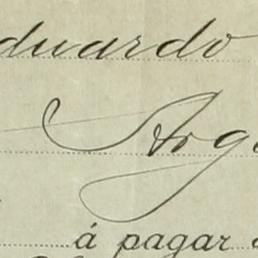 duardo
Arg
á pagar